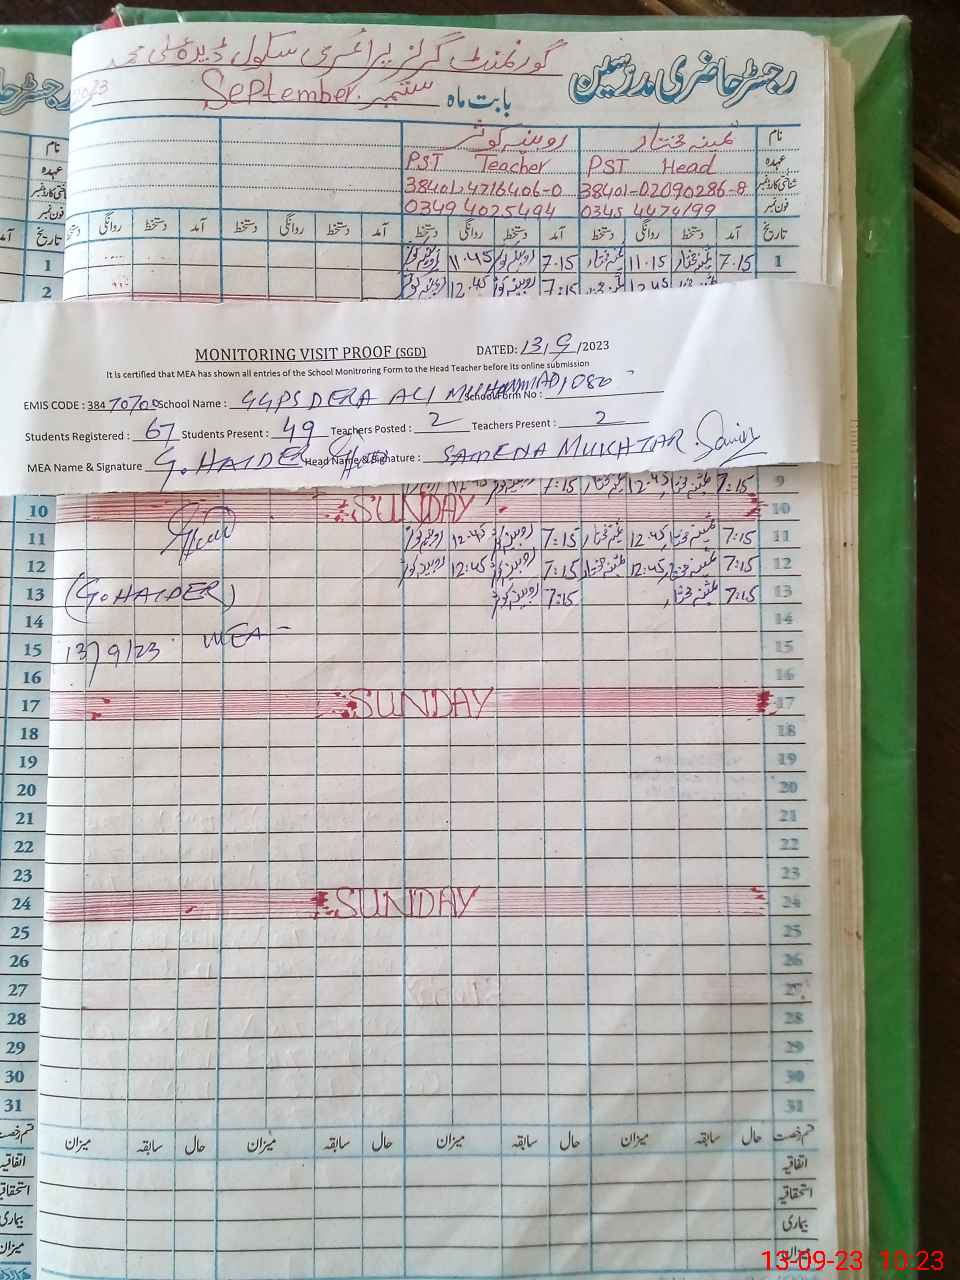 رجسٹر حاضری مدرسین
گورنمنٹ گرلز پرائمری سکول ڈیرہ علی محمد
بابت ماہ ستمبر September
نام ثمینہ مختار روبینہ کوثر
عہدہ PST Head PST Teacher
شناختی کارڈ نمبر 38401-02090286-8 38401-4716406-0
فون نمبر 0345 4474199 0349 4025494
تاریخ آمد دستخط روانگی دستخط آمد دستخط روانگی دستخط آمد دستخط روانگی دستخط آمد دستخط روانگی دستخط
1 7.15 ثمینہ مختار 11.15 ثمینہ مختار 7.15 روبینہ کوثر 11.45 روبینہ کوثر 1
12.45 7:15 روبینہ کوثر 12.45 روبینہ کوثر 2
MONITORING VISIT PROOF (SGD) DATED: 13/9/2023
It is certified that MEA has shown all entries of the School Monitroring Form to the Head Teacher before its online submission
EMIS CODE : 38470700 School Name : GGPS DERA ALI MUHAMMAD School Form No : 1080
Students Registered : 67 Students Present : 49 Teachers Posted : 2 Teachers Present : 2
MEA Name & Signature G. HAIDER Head Name & Signature : SAMENA MUKHTAR
9 7:15 12.45 7:15
10 SUNDAY 10
11 7:15 ثمینہ مختار 12.45 ثمینہ مختار 7:15 روبینہ کوثر 12.45 روبینہ کوثر 11
12 7:15 ثمینہ مختار 12.45 ثمینہ مختار 7:15 روبینہ کوثر 12:45 روبینہ کوثر 12
13 7:15 ثمینہ مختار 7:15 روبینہ کوثر (G. HAIDER) 13
14 14
15 MEA 13/9/23 15
16 16
17 SUNDAY 17
18 18
19 19
20 20
21 21
22 22
23 23
24 SUNDAY 24
25 25
26 26
27 27
28 28
29 29
30 30
31 31
قسم رخصت حال سابقہ میزان حال سابقہ میزان حال سابقہ میزان حال سابقہ میزان
اتفاقیہ
استحقاقیہ
بیماری
میزان
13-09-23 10:23